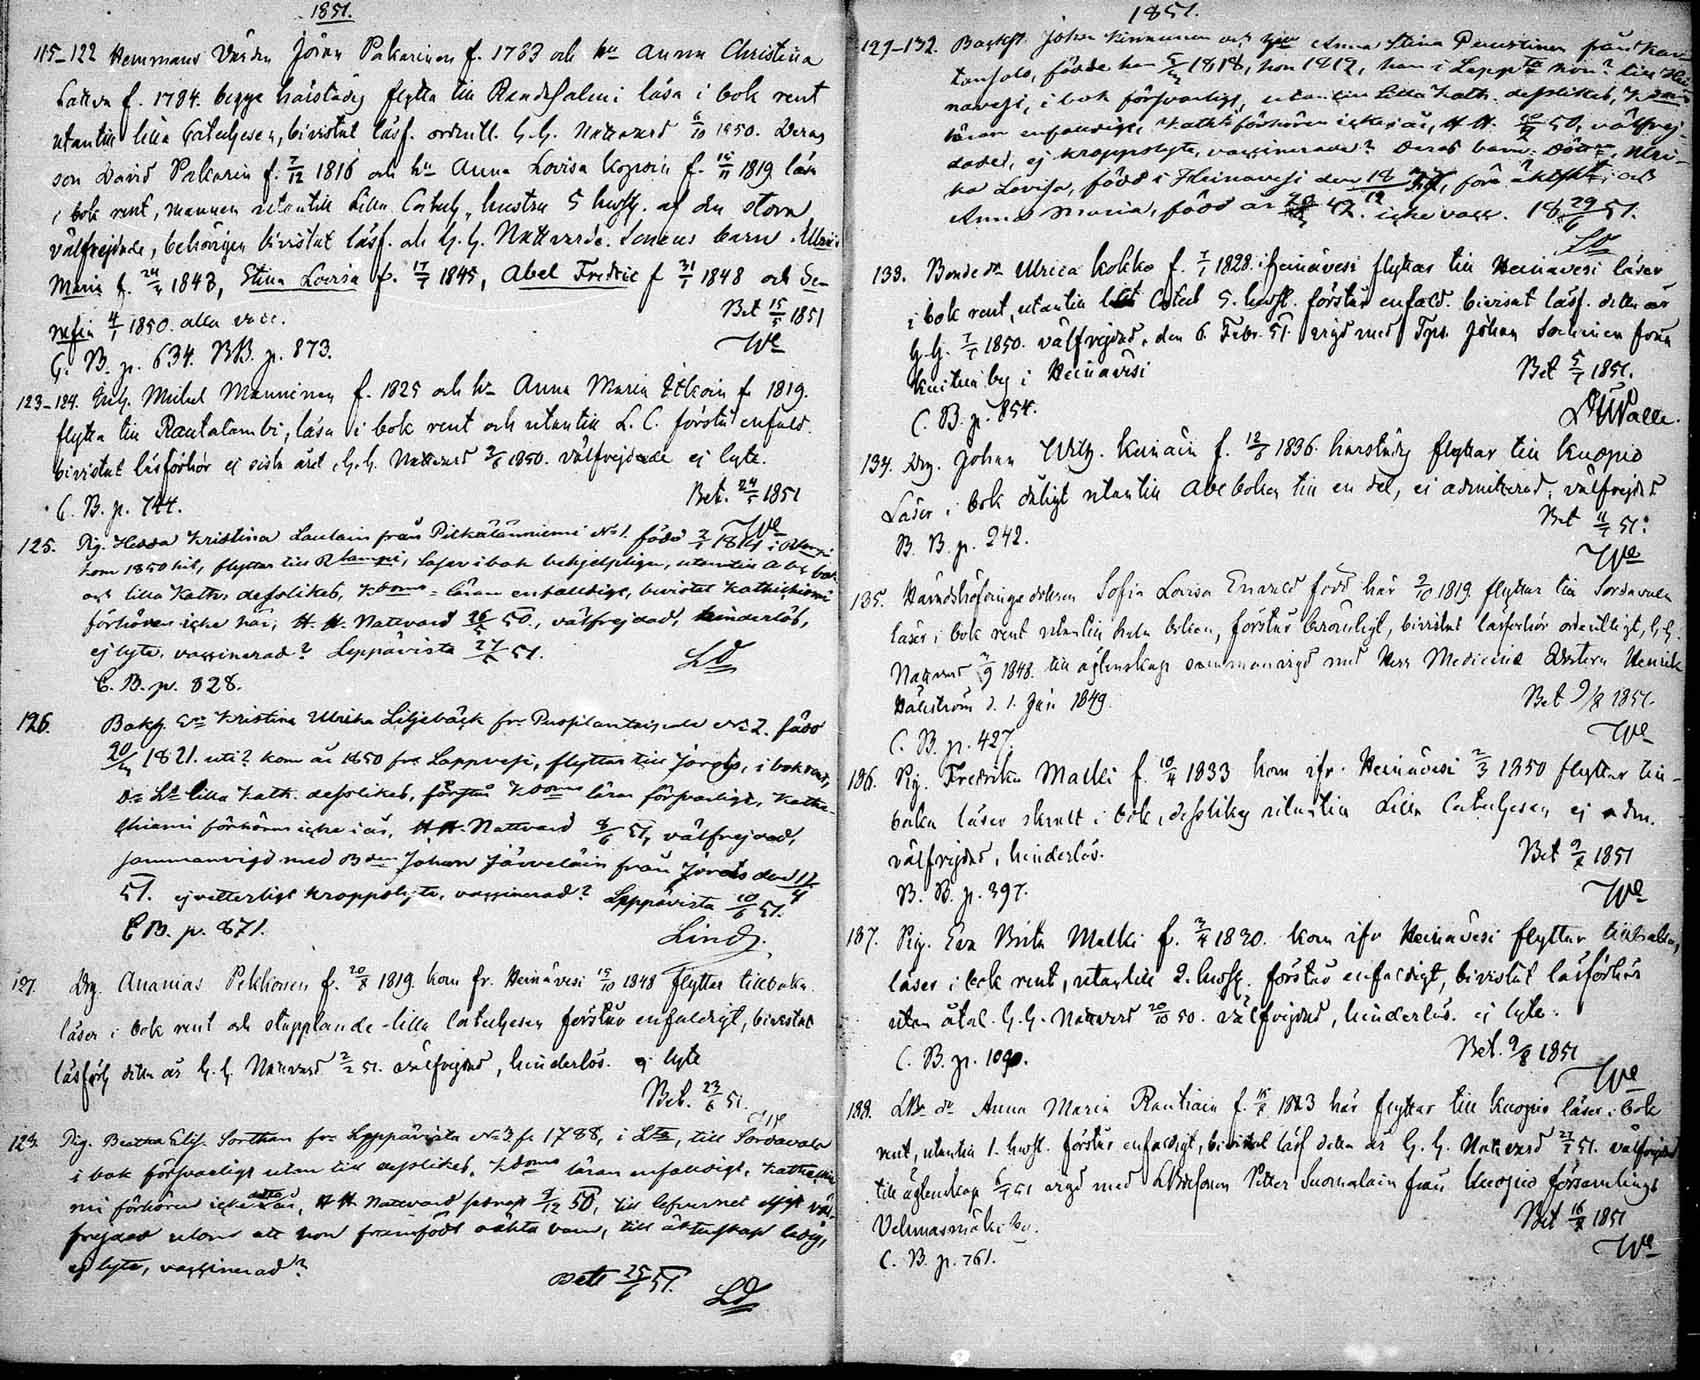 1851.
115–122 Hemmans Värden Jöran Pakarinen f. 1783 och hu Anna Christina
f. 1784. begge härstädes flytta till Randasalmi läsa i bok rent
utantill lilla Catechesen, bivistat läsf. ordentl. H. H. Nattvard 6/10 1850. Deras
son David Pakarin f. 7/12 1816 och hu Anna Lovisa f. 1819 läsa
i bok rent, mannen utantill Lilla Catech., hustru 5 hufst. af den stora
välfrejdade, behörigen bivistat läsf. och H. H. Nattvard. Sonens barn Ulrica
Maria f. 1843, Stina Lovisa f. 17/7 1845, Abel Fredric f 31/1 1848 och Se-
rafia 4/1 1850. alla vacc.
Bet 15/5 1851
We
C. B. p. 634. BB. p. 873.
123–124. Michel Manninen f. 1825 och hu Anna Maria f. 1819.
flytta till Rautalambi, läsa i bok rent och utantill L. C. förstå enfald.
bivistat läsförhör ej sista året, H. H. Nattvard 1850. välfrejdade ej lyte.
Bet. 24/5 1851
We
C. B. p. 744.
125. Pig. Hedda Kristina Laulain från Pitkälänniemi No 1. född
kom 1850 hit, flyttar till läser i bok behjelpligen, utantill Abc bok
och lilla Kathes defslikes, Kdoms-läran enfaldigt, bivistat Kathekismi
förhören icke här, H. H. Nattvard 26/5 50., välfrejdad, hinderlös,
ej lyte, vaccinerad? Leppävirta 27/5 51.
LD
C. B. p. 828.
126. Kristina Ulrika Liljebäck frn No 2. född
20/ 1821. uti? kom år 1850 frn Lappvesi, flyttar till Jorois, i bok rent,
lilla Kath. defslikes, förstår Kdoms läran försvarligt, Kathe-
chismi förhören icke i år, H H. Nattvard 9/6 51, välfrejdad,
sammanvigd med Bden Johan Järveläin från Jorois den 17/4
51. ej vetterligt kroppslyte, vaccinerad? Leppävirta 10/6 51.
C B. p. 871.
Lind
127. Drg. Ananias Pekkonen f. 20/8 1819. kom fr. Heinävesi 15/10 1848 flyttar tillbaka
läser i bok rent och stapplande lilla Catechesen förstår enfaldigt, bivistat
läsförh detta år H. H. Nattvard 2/2 51. välfrejdad, hinderlös. ej lyte
Bet. 23/6 51.
We
128. Pig. Beatha Elis. Sorthan frn Leppävirta No 3, f. 1788, i Lta, till Sordavala
i bok försvarligt utan till defslikes, Kdoms läran enfaldigt, Kathechis-
mi förhören icke detta år, H H Nattvard senast 9/12 50, till lefvernet väl-
frejdad utom att hon framfödt oäkta barn, till äktenskap ledig,
ej lyte, vaccinerad?
Bett 25/6 51.
LD
1851.
129–132. Backst. Johan Kinnunen och Anna Stina från
födde han 1818, hon 1812, han i Leppta hon? till Hei-
navesi, i bok försvarligt, utantill Lilla Kath. defslikes, Kdoms
läran enfaldigt, Kath förhören icke i år, H H. 50, välfrej-
dade, ej kroppslyte, vaccinerade? Deras barn: Döttrar, Ulri-
ka Lovisa, född i Heinavesi den 18/12 före äktsk., och
Anna Maria, född år 42. icke vacc. 18 29/6 51.
LD
133. Bonde dr Ulrica Kokko f. 7/1 1828. i Heinävesi flyttar till Heinävesi läser
i bok rent, utantill Catech 5. hufst. förstår enfald. bivistat läsf. detta år
H. H. 1850. välfrejdad, den 6. Febr. 51. vigd med Johan från
by i Heinävesi
Bet 5/7 1851.
Walle.
C. B. p. 854.
134. Drg. Johan Wilh. Keinäin f. 12/3 1836. härstädes flyttar till Kuopio
Läser i bok dåligt utantill Abc boken till en del, ej admitterad, välfrejdad
Bet 11/7 51.
We
B. B. p. 242.
135. Häradshöfdings dottren Sofia Lovisa född här 9/10 1819 flyttar till Sordavala
läser i bok rent utantill hela förstår bivistat läsförhör ordentligt, H. H.
Nattvard 1848. till äktenskap sammanvigd med Herr Medicine Doctorn Henrik
Hällström d. 1. Juni 1849.
Bet 9/8 1851.
We
C. B. p. 427.
136. Pig. Fredrika Matki f. 10/4 1833 kom ifr. Heinävesi 2/3 1850 flyttar till-
baka läser i bok, defslikes utantill Lilla Catechesen, ej adm.
välfrejdad, hinderlös.
Bet 9/8 1851
We
B. B. p. 397.
137. Pig. Eva Brita Matki f. 3/4 1830. kom ifr Heinävesi flyttar tillbaka,
läser i bok rent, utantill 2. hufst. förstår enfaldigt, bivistat läsförhör
utan åtal. H. H. Nattvard 20/10 50. välfrejdad, hinderlös. ej lyte.
Bet. 9/8 1851
We
C. B. p. 1090.
138. LB dr Anna Maria Rautiain f. 1823 här flyttar till Kuopio läser i bok
rent, utantill 1. hufst. förstår enfaldigt, bivistat läsf detta år H. H. Nattvard 51. välfrejdad
till äktenskap 51 vigd med Petter Suomalain från Kuopio församlings
Vehmasmäki by.
Bet 16/8 1851
We
C. B. p. 761.